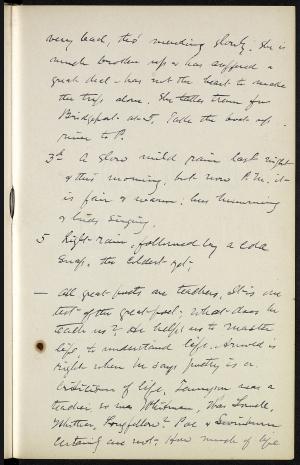 very bad, tho' mending slowly. She is
much broken up & has suffered a
great deal - has not the heart to make
the trip alone. She takes train for
Bridgeport at 5. Take the boat up
river to P.
3d A slow mild rain last night
& this morning, but now P.M. it
is fair & warm; bees humming
& birds singing.
5 Light rain, followed by a cold
snap, the coldest yet;
— All great poets are teachers. It is one
test of the great poet; what does he
teach us? He helps us to master
life, to understand life. Arnold is
right when he says poetry is a
criticism of life. Tennyson was a
teacher, so was Whitman. Was Lowell,
Whittier, Longfellow? Poe & Swinburne
certainly are not. How much of life